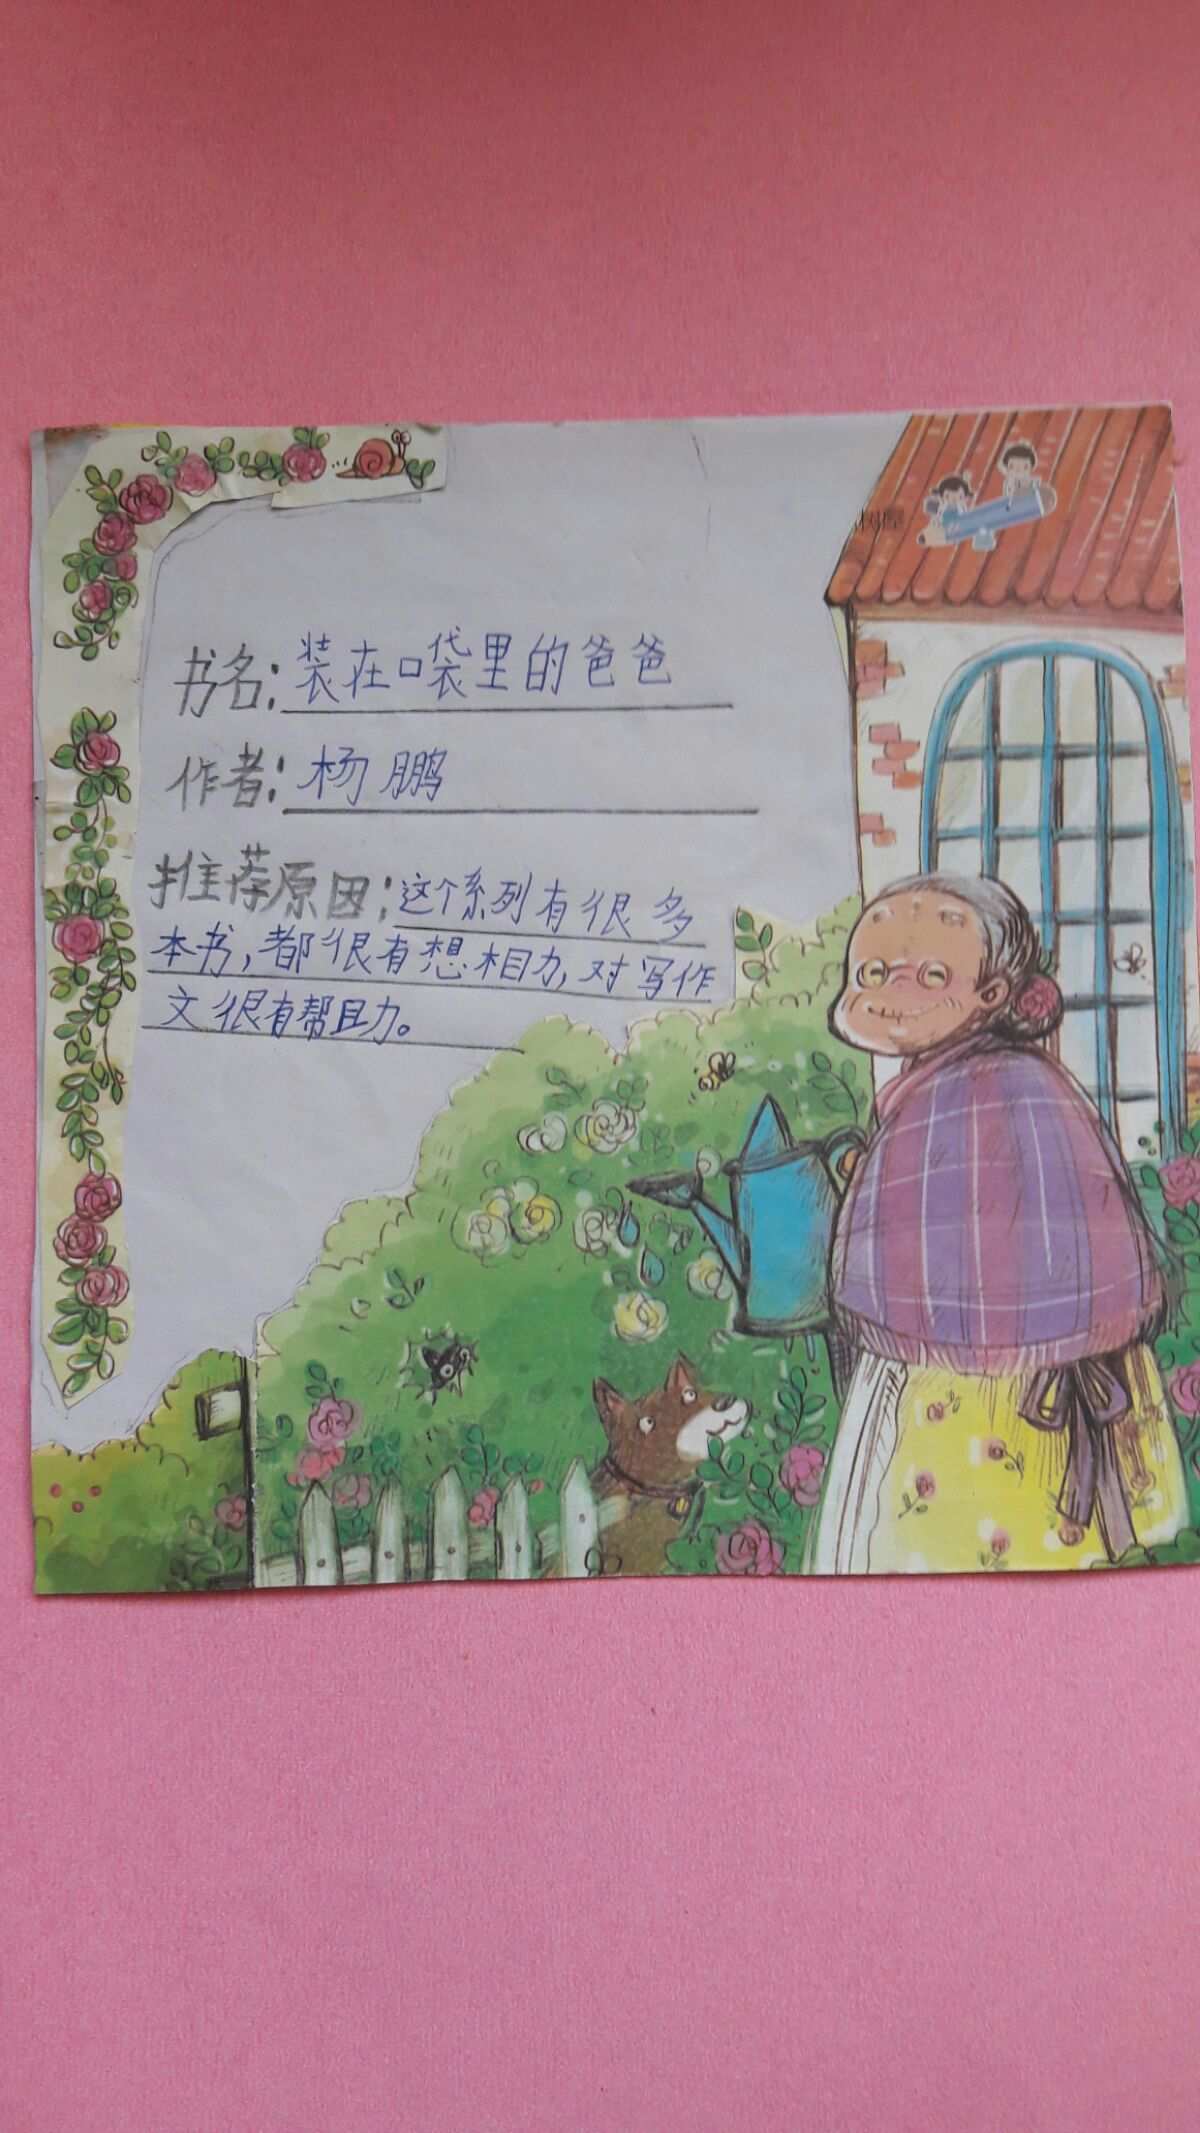 树屋
书名:装在口袋里的爸爸
作者:杨鹏
推荐原因:这个系列有很多
本书,都很有想相力,对写作
文很有帮且力。